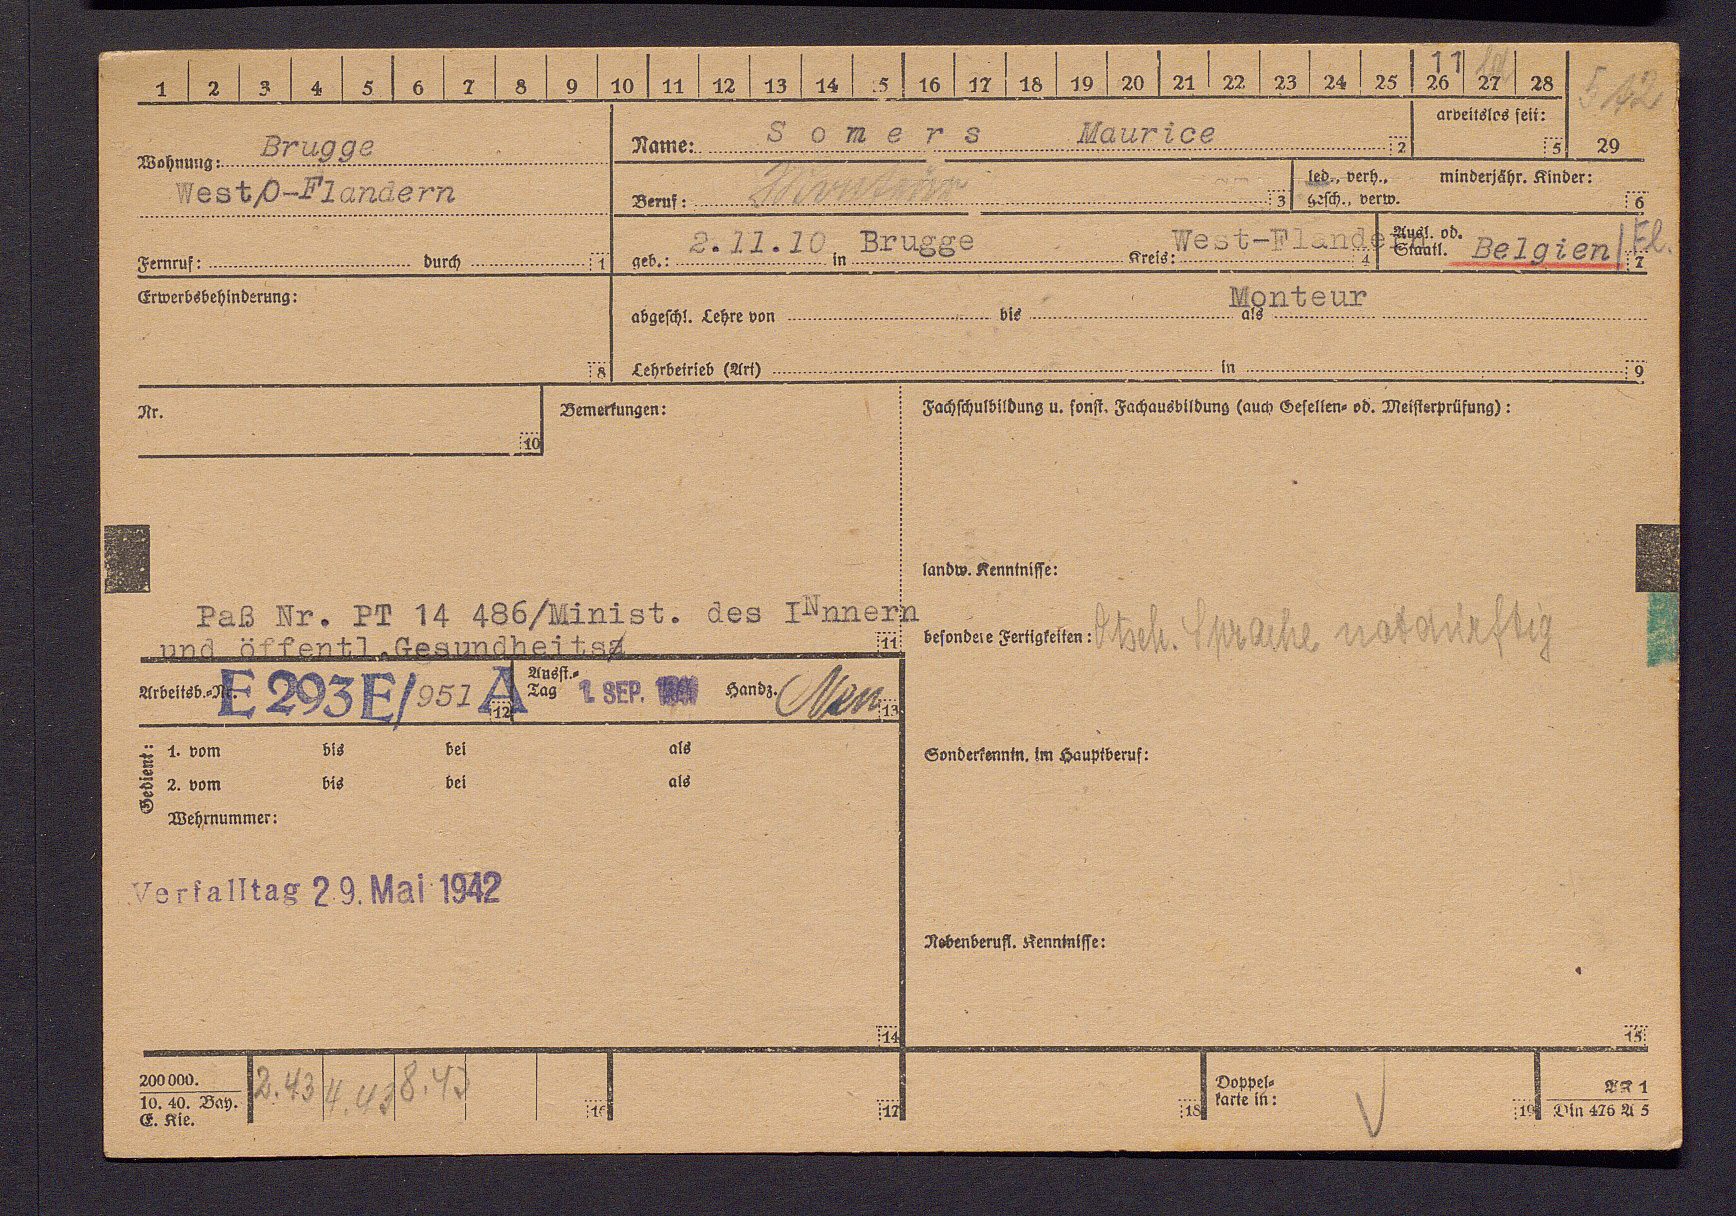 1 2 3 4 5 6 7 8 9 10 11 12 13 14 15 16 17 18 19 20 21 22 23 24 25 26 27 28
11
5 42
arbeitslos seit:
5
29
Wohnung: Brugge
West/O-Flandern
Fernruf: durch 1
Name: Somers Maurice 2
Beruf: 3
led., verh.,
gesch., verw.
minderjähr. Kinder:
6
geb.: 2.11.10 in Brugge Kreis: West-Flandern 4
Ausl. od.
Staatl. Belgien/Fl.
7
Erwerbsbehinderung:
8
abgeschl. Lehre von bis als Monteur
Lehrbetrieb (Art) in 9
Nr.
10
Bemerkungen:
Paß Nr. PT 14 486/Minist. des INnnern
und öffentl.Gesundheits
11
Fachschulbildung u. sonst. Fachausbildung (auch Gesellen- od. Meisterprüfung):
landw. Kenntnisse:
besondere Fertigkeiten: Dtsch. Sprache notdürftig
Arbeitsb.-Nr. E 293 E/951 A 12
Ausst.-
Tag 1. SEP. 13
Handz.
Gedient:
1. vom bis bei als
2. vom bis bei als
Wehrnummer:
Verfalltag 29. Mai 1942
14
Sonderkenntn. im Hauptberuf:
Nebenberufl. Kenntnisse:
15
200 000.
10. 40. Bay.
E. Kie.
2.43 4.43 8.43
16
17
18
Doppel-
karte in:
19
AK 1
Din 476 A 5